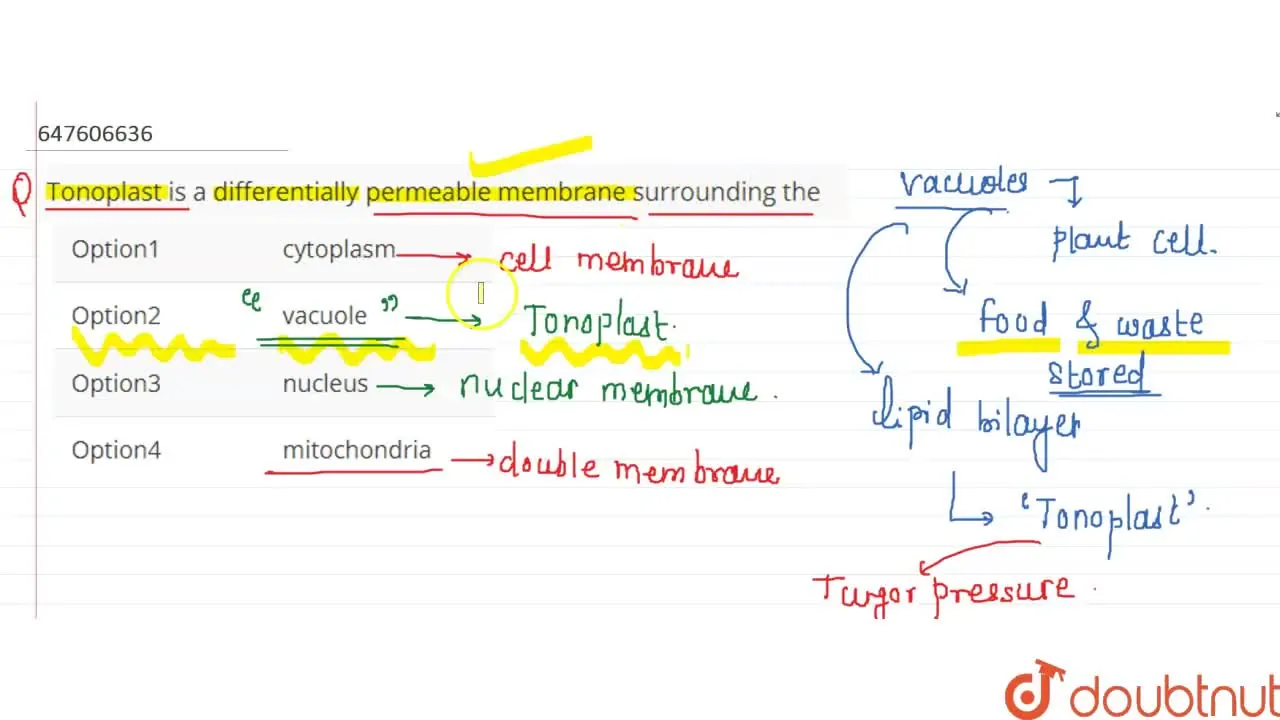 647606636
Q Tonoplast is a differentially permeable membrane surrounding the
Option1 cytoplasm → cell membrane
Option2 “ vacuole ” → Tonoplast.
Option3 nucleus → nuclear membrane.
Option4 mitochondria → double membrane
vacuoles
plant cell.
food & waste
stored
lipid bilayer
‘Tonoplast’.
Turgor pressure.
doubtnut